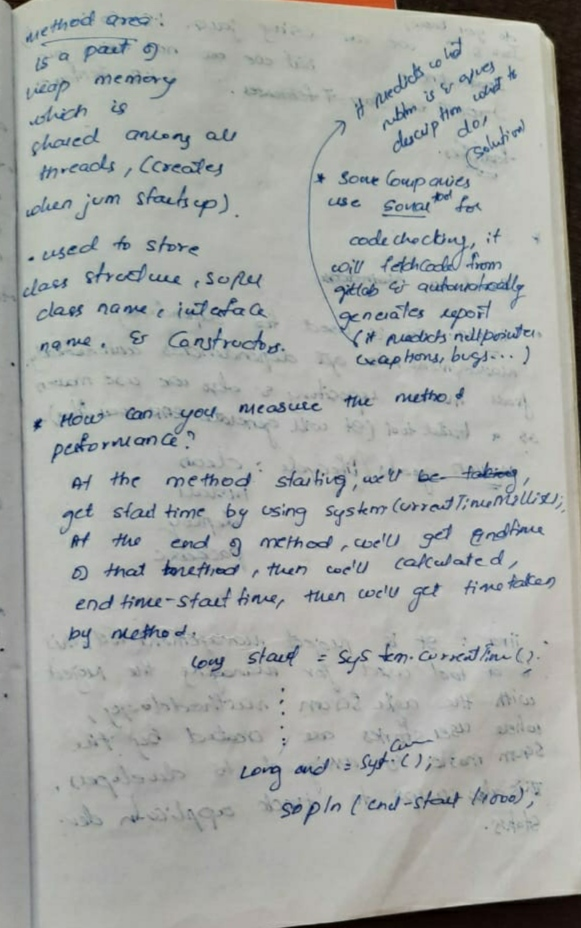 method area:
is a part of
heap memory
which is
shared among all
threads, (creates
when jvm startsup).
• used to store
class structure, super
class name, interface
name, & Constructors.
it predicts what
is & gives
description what to
do,
(solution)
* Some Companies
use Sonar tool for
code checking, it
will fetch Code from
gitlab & automatically
generates report
(it predicts nullpointer
exceptions, bugs...)
* How can you measure the method
performance?
At the method starting, we'll be taking,
get start time by using System.currentTimeMillis();
At the end of method, we'll get Endtime
of that method, then we'll calculated,
end time-start time, then we'll get time taken
by method.
long start = System.currentTime().
long end = Syst.Curr();
sopln (end-start/1000);